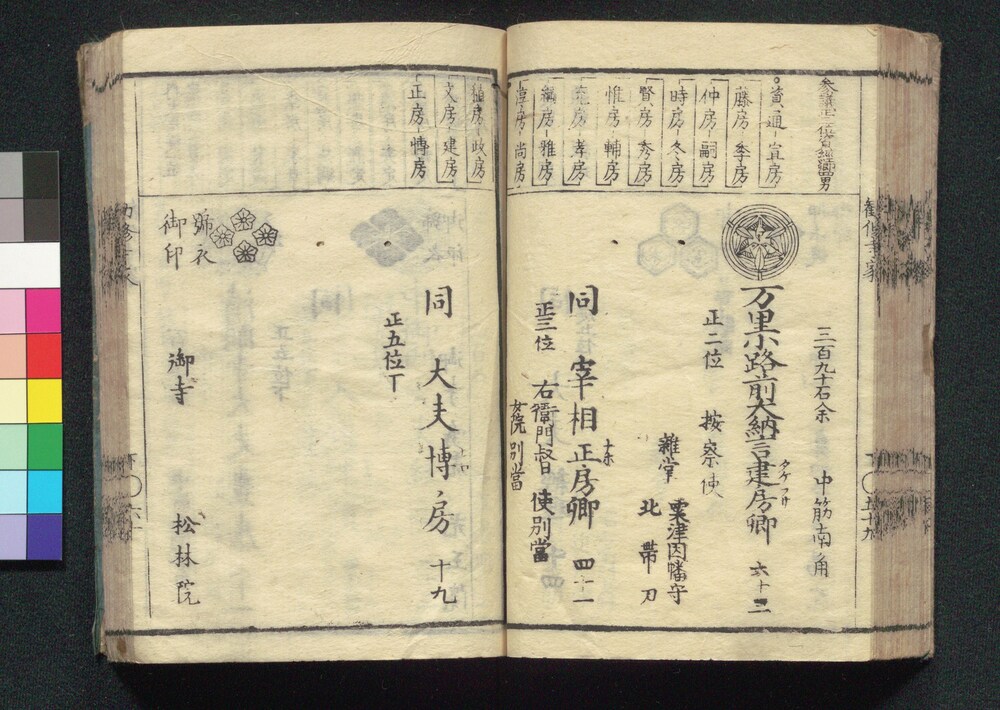 勧修寺家
参議正二位資経卿男
資通 宣房
藤房 季房
仲房 嗣房
時房 冬房
賢房 秀房
惟房 輔房
孝房
淳房 尚房
稙房 雅房
韶房 政房
文房 建房
正房 博房
三百九十石余 中筋南角
万里小路前大納言建房卿 六十三
タケフサ
正二位 按察使
雑掌 粟津因幡守
北 帯刀
同 宰相正房卿 四十一
ナホ
正三位 右衛門督 使別當
女院別當
同 大夫博房 十九
正五位下
号衣
御印
御寺 松林院
五十九
六十